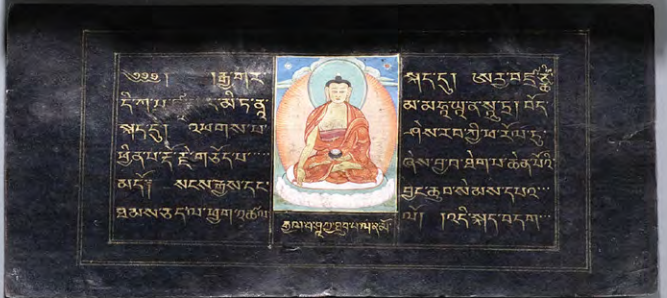 ༄༅༅། །རྒྱ་གར་ སྐད་དུ། ཨརྱ་བཛྲ་ཙྪེ་
དི་ཀ་ ར་མི་ཏ་ནཱ་ མ་མཧཱ་ཡཱ་ན་སཱུ་ཏྲ། བོད་
སྐད་དུ། འཕགས་པ་ ཤེས་རབ་ཀྱི་ཕ་རོལ་ཏུ་
ཕྱིན་པ་རྡོ་རྗེ་གཅོད་པ་ ཞེས་བྱ་བ་ཐེག་པ་ཆེན་པོའི་
མདོ། སངས་རྒྱས་དང་ བྱང་ཆུབ་སེམས་དཔའ་
ཐམས་ཅད་ལ་ཕྱག་འཚལ་ ལོ། །འདི་སྐད་བདག་
རྒྱལ་བ་ཤཱཀྱ་ཐུབ་པ་ལ་ན་མོ